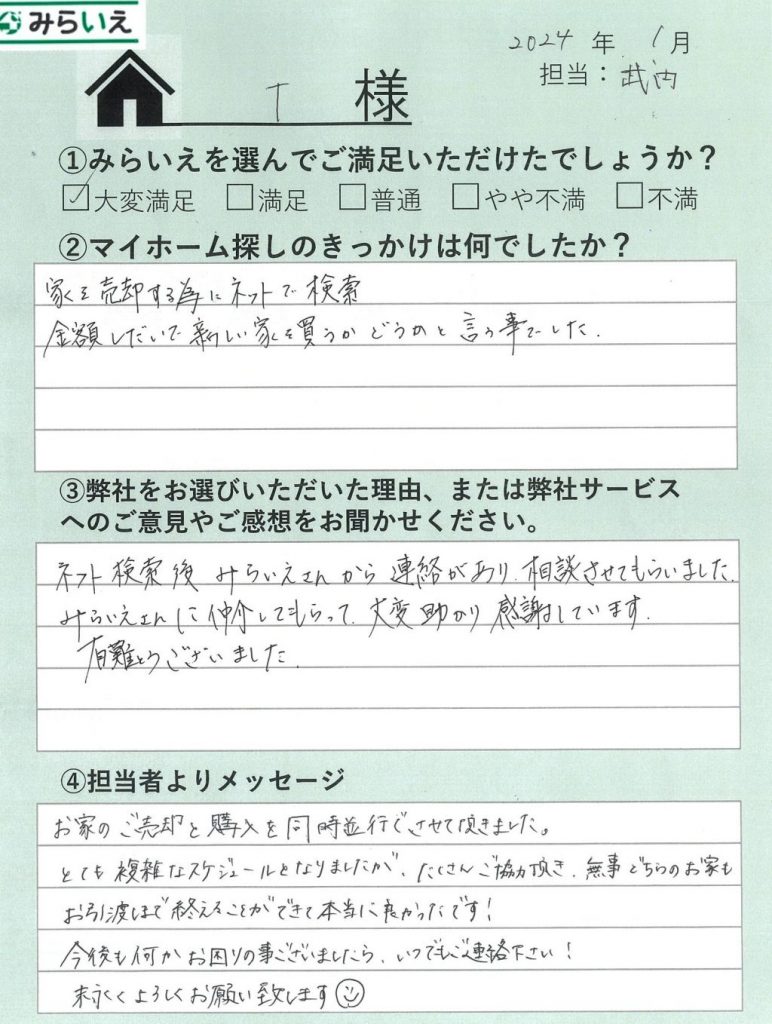 みらいえ
2024年 1月
担当：武内
T 様
①みらいえを選んでご満足いただけたでしょうか？
☑大変満足 □満足 □普通 □やや不満 □不満
②マイホーム探しのきっかけは何でしたか？
家を売却する為にネットで検索
金額しだいで新しい家を買うかどうかと言う事でした.
③弊社をお選びいただいた理由、または弊社サービス
へのご意見やご感想をお聞かせください。
ネット検索後 みらいえさんから連絡があり、相談させてもらいました.
みらいえさんに仲介してもらって、大変助かり感謝しています.
有難とうございました.
④担当者よりメッセージ
お家のご売却と購入を同時並行でさせて頂きました。
とても複雑なスケジュールとなりましたが、たくさんご協力頂き、無事どちらのお家も
お引渡しまで終えることができて本当に良かったです！
今後も何かお困りの事ございましたら、いつでもご連絡下さい！
末永くよろしくお願い致します☺